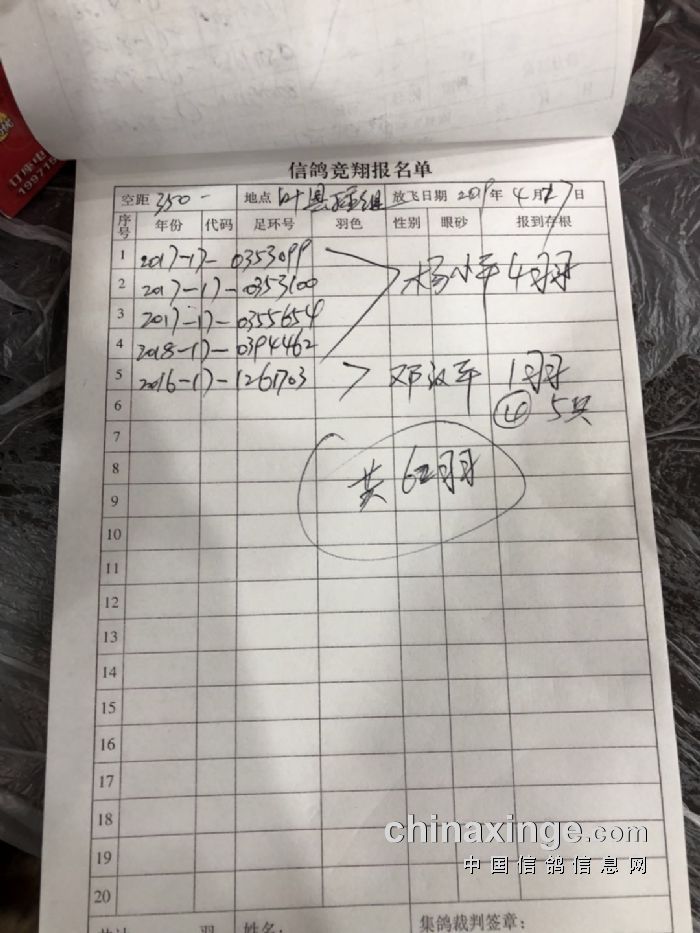 信鸽竞翔报名单
空距 350 地点 叶县 组 放飞日期 2019年 4月17日
序号 年份 代码 足环号 羽色 性别 眼砂 报到存根
1 2017-17-0353099
2 2017-17-0353100 杨小平 4羽
3 2017-17-0355654
4 2018-17-0394462
5 2016-17-1261703 邓 军 1羽
6 ④ 5只
7
8 共 62羽
9
10
11
12
13
14
15
16
17
18
19
20
羽 姓名: 集鸽裁判签章:
订座电
199715
chinaxinge.com
中国信鸽信息网